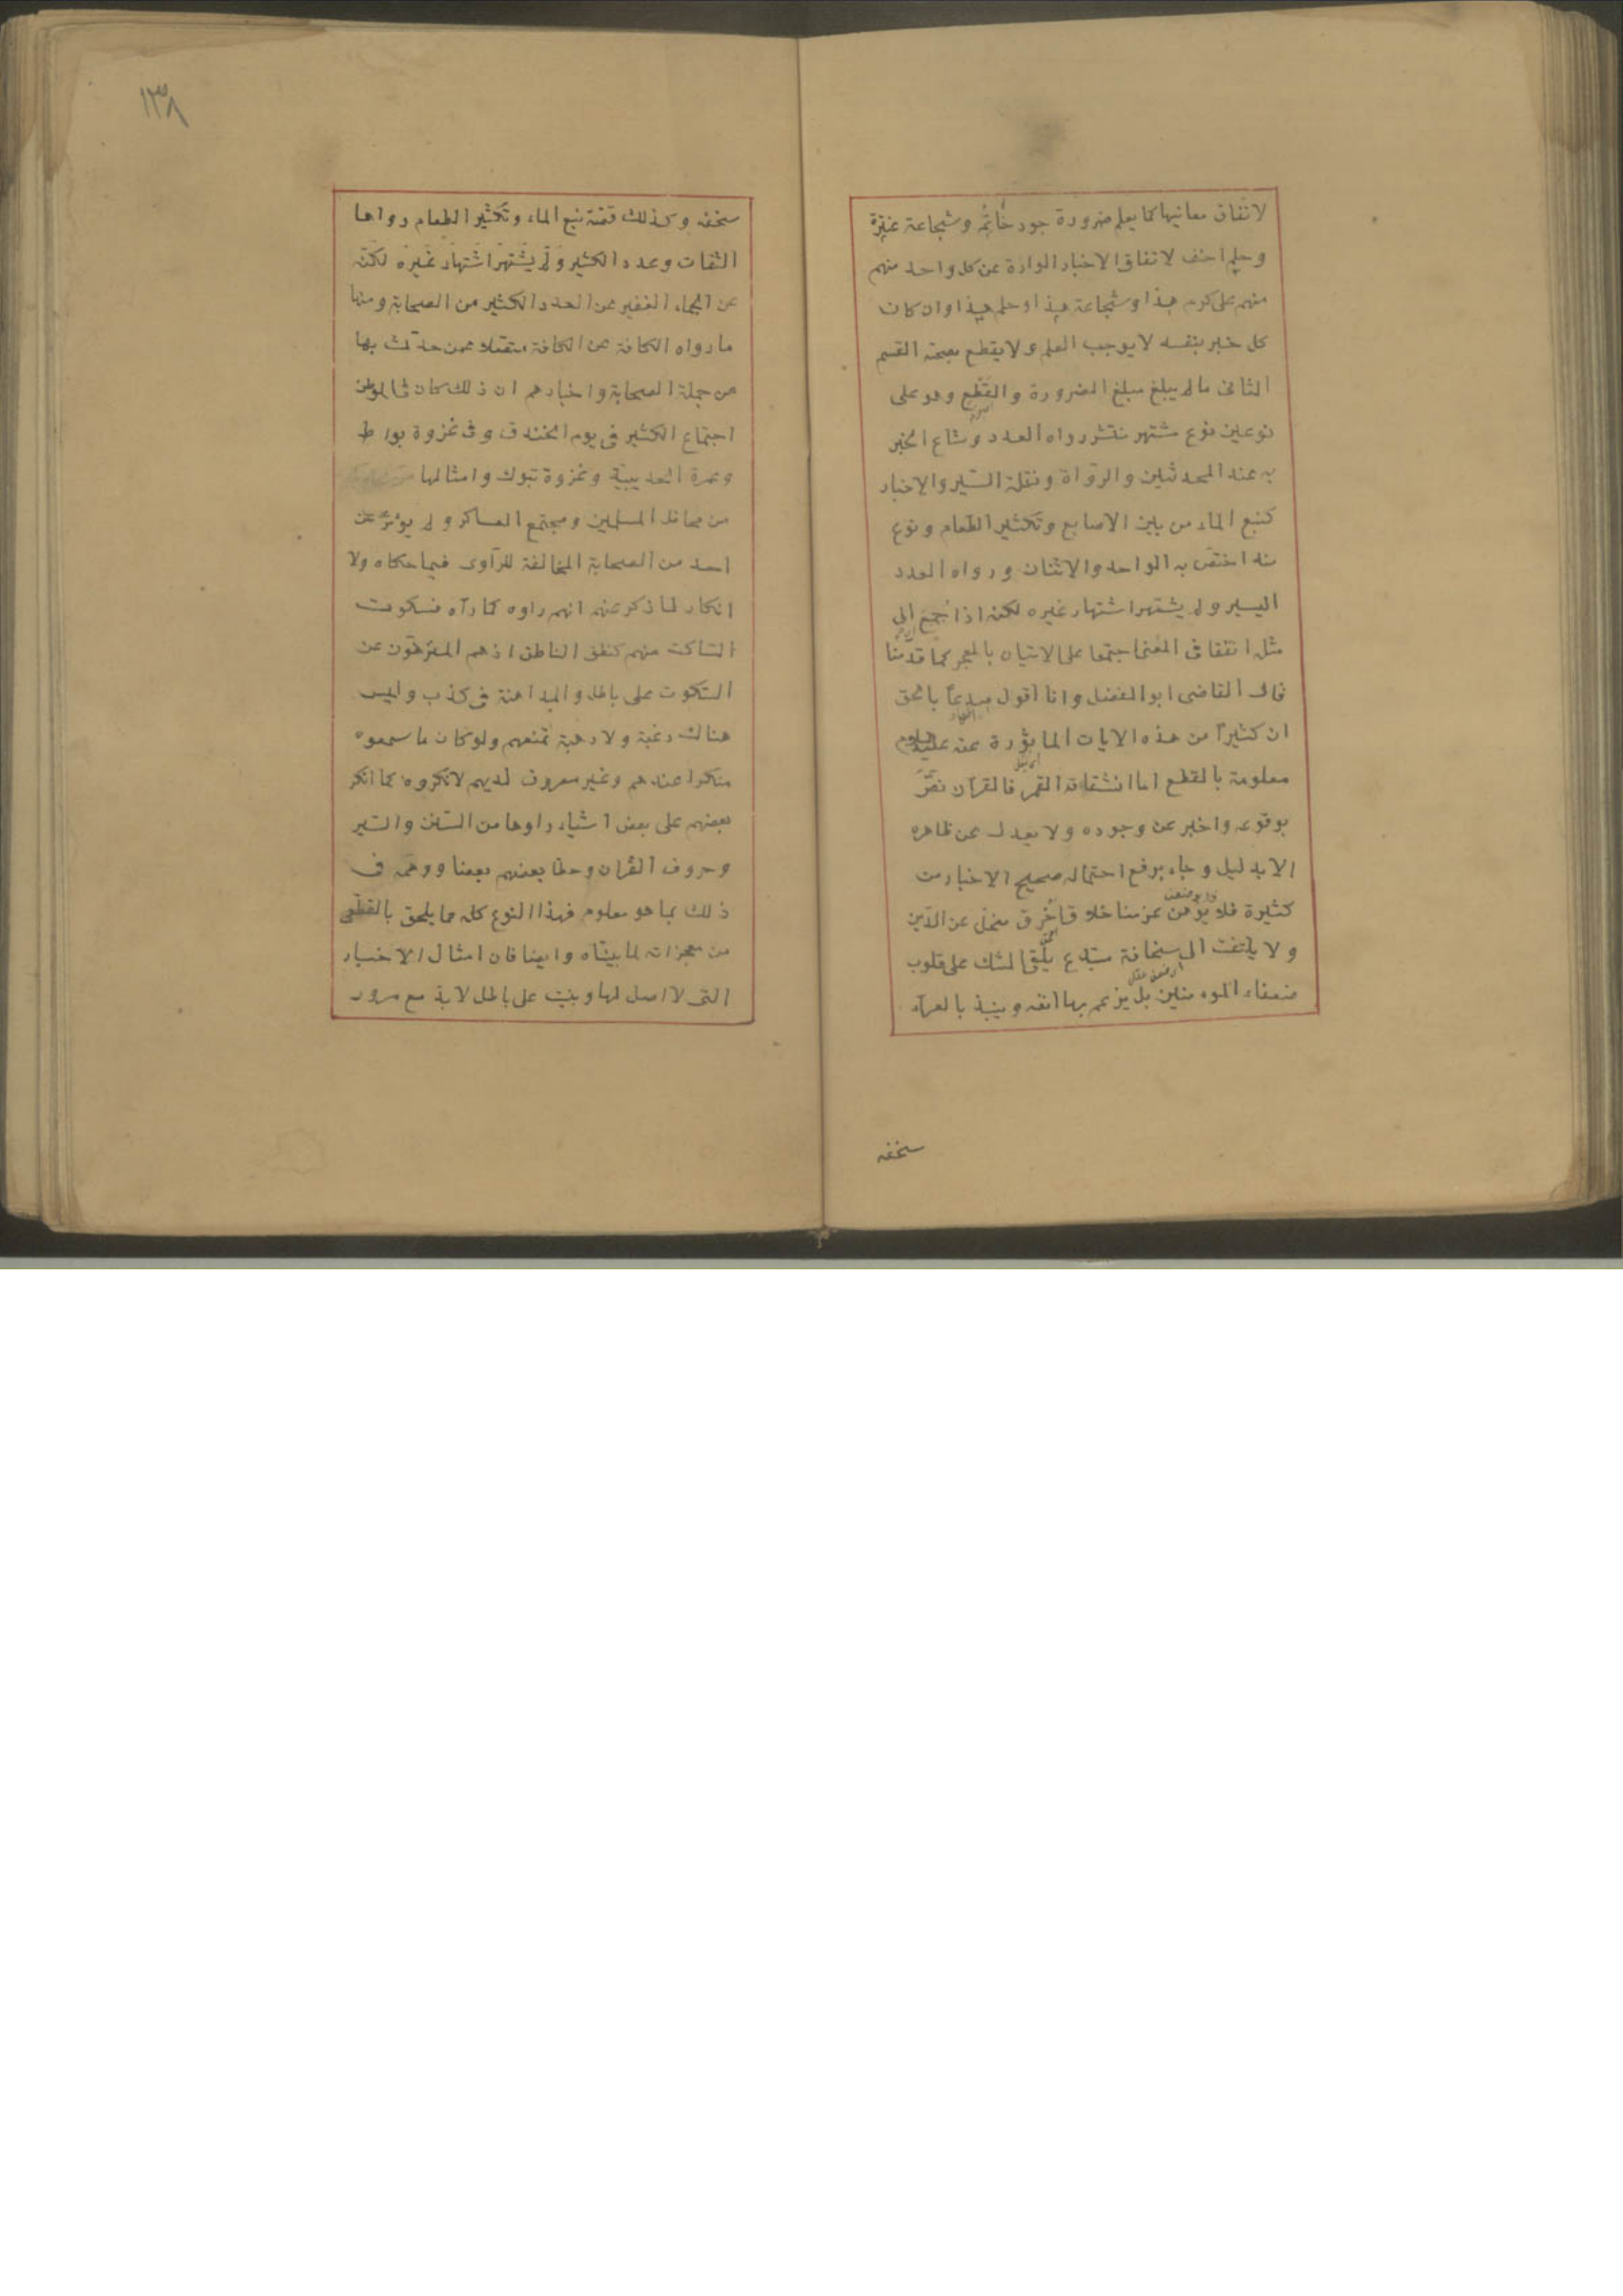 لاتفاق معانيها كما يعلم ضرورة جود خاتم وشجاعة عنزة
وحلم احنف لاتفاق الاخبار الوارة عن كل واحد منهم
منهم على كرم هذا وشجاعة هذا وحلم هذا وان كان
كل خبر بنفسه لا يوجب العلم ولا يقطع بصحته القسم
الثانى ما لم يبلغ مبلغ الضرورة والقطع وهو على
نوعين نوع مشتهر منتشر رواه العدد وشاع الخبر
به عند المحدثين والرواة ونقلة السير والاخبار
كنبع الماء من بين الاصابع وتكثير الطعام ونوع
منه اختص به الواحد والاثنان ورواه العدد
اليسير ولم يشتهر اشتهار غيره لكنه اذا جمع الى
مثله اتفقا فى المعنى اجتمعا على الاتيان بالمعجز كما قدمنا
قال القاضى ابو الفضل وانا اقول صدعا بالحق
ان كثيرا من هذه الايات الماثورة عنه عليه
معلومة بالقطع اما انشقاق القمر فالقرآن نص
بوقوعه واخبر عن وجوده ولا يعدل عن ظاهره
الا بدليل وجاء برفع احتماله صحيح الاخبار من
كثيرة فلا يوهن عزمنا خلاف اخرق منحل عن الدين
ولا يلتفت الى سخافة مبتدع يلقى الشك على قلوب
ضعفاء المومنين بل يزعم بها انفه وينبذ بالعرآء
سخفه
١٣٨
سخفه وكذلك قصة نبع الماء وتكثير الطعام رواها
الثقات وعدد الكثير ولم يشتهر اشتهار غيره لكنه
عن الجماء الغفير عن العدد الكثير من الصحابة ومنها
ما رواه الكافة عن الكافة متصلا عمن حدث بها
من جملة الصحابة واخبارهم ان ذلك كان فى موطن
اجتماع الكثير فى يوم الخندق وفى غزوة بواط
وعمرة الحديبية وغزوة تبوك وامثالها
من محافل المسلمين ومجتمع العساكر ولم يوثر عن
احد من الصحابة المخالفة للرآوى فيما حكاه ولا
انكار لما ذكر عنهم انهم راوه كما رآه فسكوت
الساكت منهم كنطق الناطق اذ هم المنزهون عن
السكوت على باطل والمداهنة فى كذب وليس
هناك رغبة ولا رهبة تمنعهم ولو كان ما سمعوه
منكرا عندهم وغير معروف لديهم لانكروه كما انكر
بعضهم على بعض اشياء راوها من السنن والسير
وحروف القران وخطا بعضهم بعضا ووهمه فى
ذلك بما هو معلوم فهذا النوع كله مما يلحق بالقطعى
من معجزاته لما بيناه وايضا فان امثال الاخبار
التى لا اصل لها وبنيت على باطل لا بد مع مرور